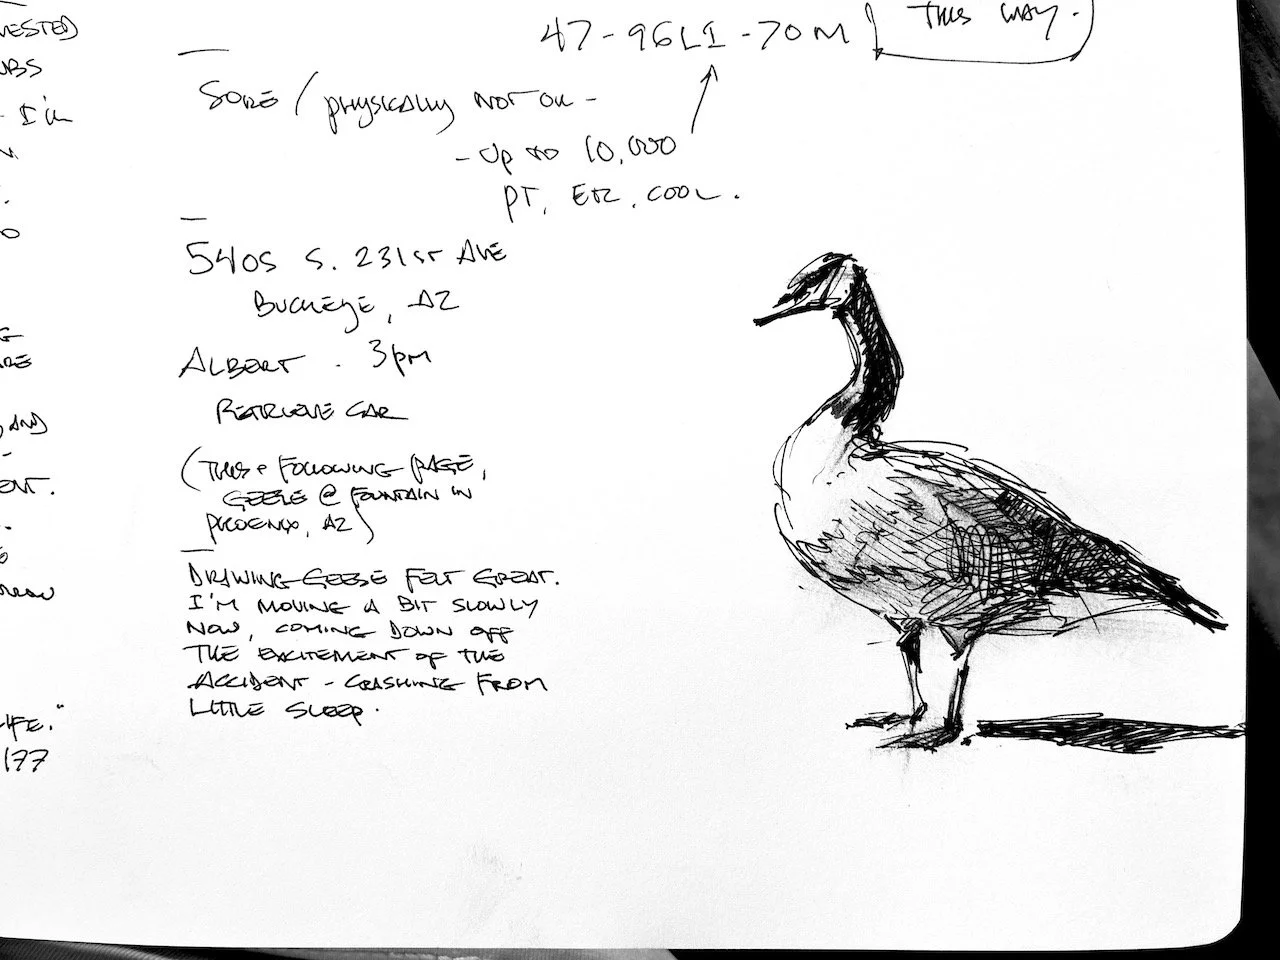 47-96LI-70M
THIS WAY.
SORE / PHYSICALLY NOT OK -
- UP TO 10,000
PT, ETC. COOL.
5405 S. 231ST AVE
BUCKEYE, AZ
ALBERT . 3pm
RETRIEVE CAR
(THIS + FOLLOWING PAGE,
GEESE @ FOUNTAIN IN
PHOENIX, AZ)
DRAWING GEESE FELT GREAT.
I'M MOVING A BIT SLOWLY
NOW, COMING DOWN OFF
THE EXCITEMENT OF THE
ACCIDENT - CRASHING FROM
LITTLE SLEEP.
I'M
AND
177